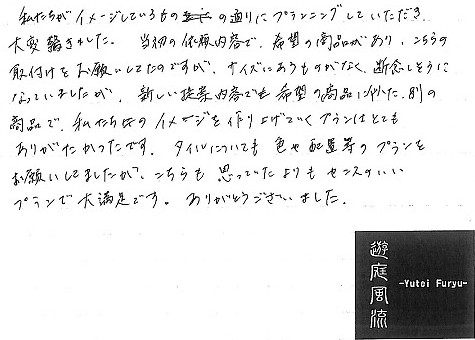 私たちがイメージしているものの通りにプランニングしていただき
大変驚きました。 当初の依頼内容で、希望の商品があり、こちらの
取付けをお願いしてたのですが、サイズにあうものがなく、断念しそうに
なっていましたが、新しい提案内容でも希望の商品に似た、別の
商品で、私たちのイメージを作り上げていくプランはとても
ありがたかったです。 タイルについても色や配置等のプランを
お願いしてましたが、こちらも思っていたよりもセンスのいい
プランで大満足です。 ありがとうございました。
遊庭風流
-Yutei Furyu-